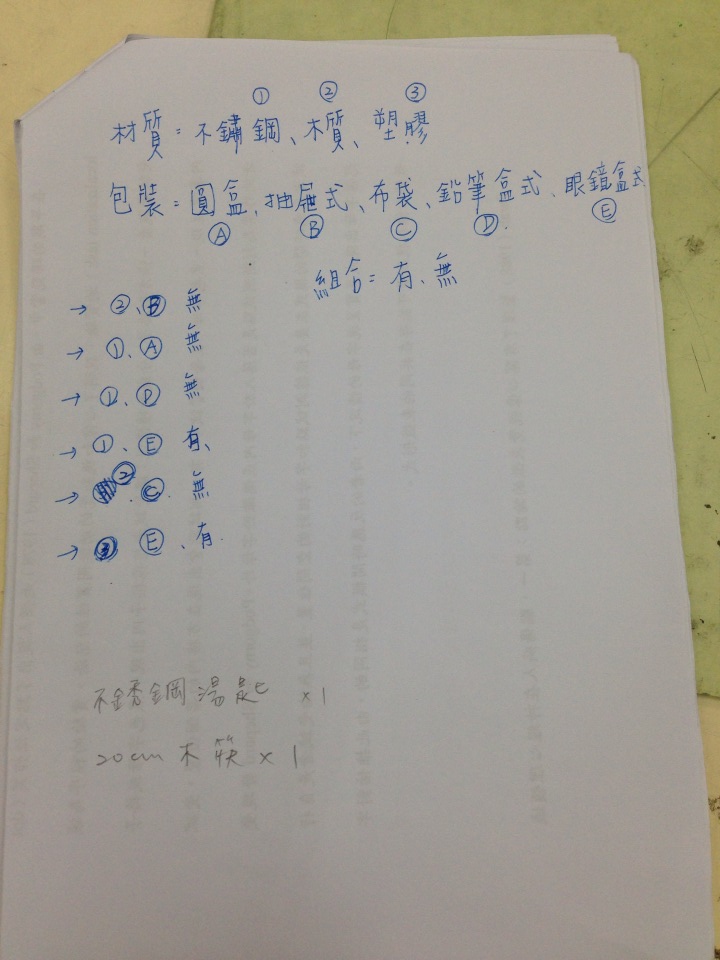 ① ② ③
材質=不鏽鋼、木質、塑膠
包裝=圓盒、抽屜式、布袋、鉛筆盒式、眼鏡盒式
Ⓐ Ⓑ Ⓒ Ⓓ Ⓔ
組合=有、無
→ ②、Ⓑ 無
→ ①、Ⓐ 無
→ ①、Ⓓ 無
→ ①、Ⓔ 有、
→ ②、Ⓒ、無
→ ③ Ⓔ、有
不銹鋼湯匙 ×1
20cm 木筷 ×1